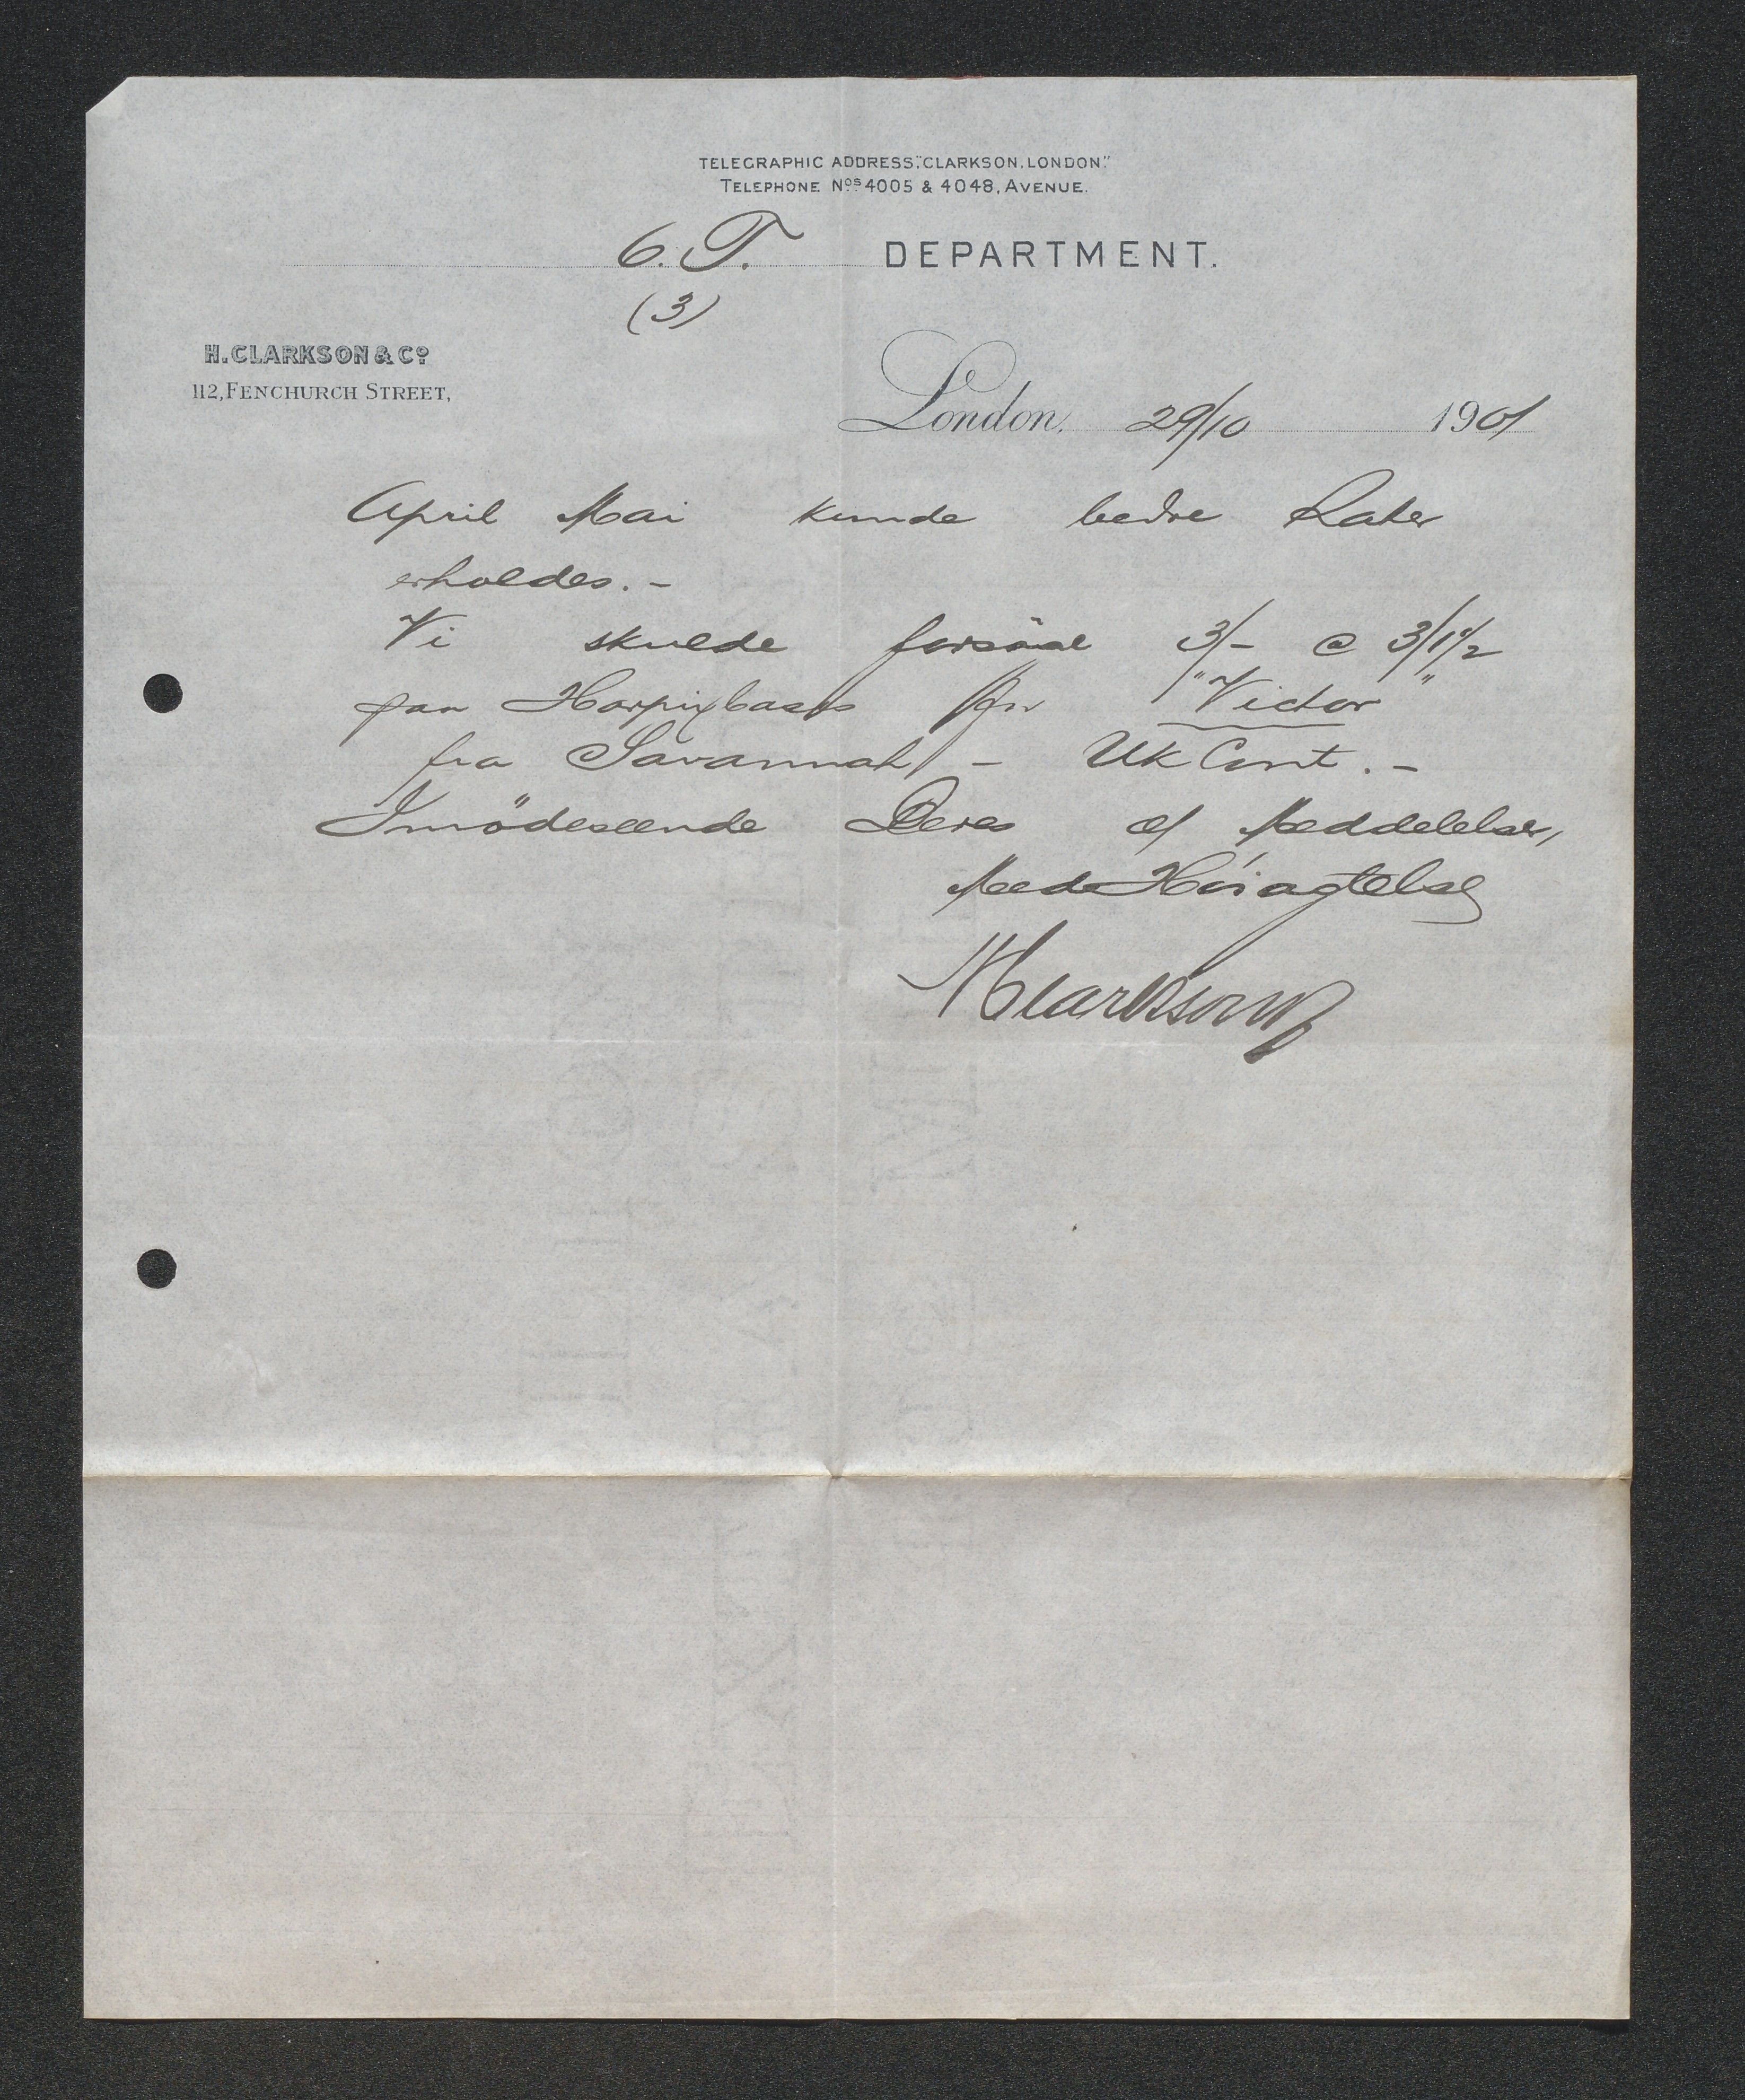 TELEGRAPHIC ADDRESS, "CLARKSON, LONDON."
TELEPHONE Nos. 4005 & 4048, AVENUE.
6. T. DEPARTMENT.
(3)
H. CLARKSON & Co.
112, FENCHURCH STREET,
London, 29/10 1901
April Mai kunde bedre Rater
erholdes. -
Vi skulde forsöge 3/- @ 3/1½
paa Harpixbasis for "Victor"
fra Savannah - UK Cont. -
Imödeseende Deres Meddelelser,
Med Höiagtelse
HClarkson